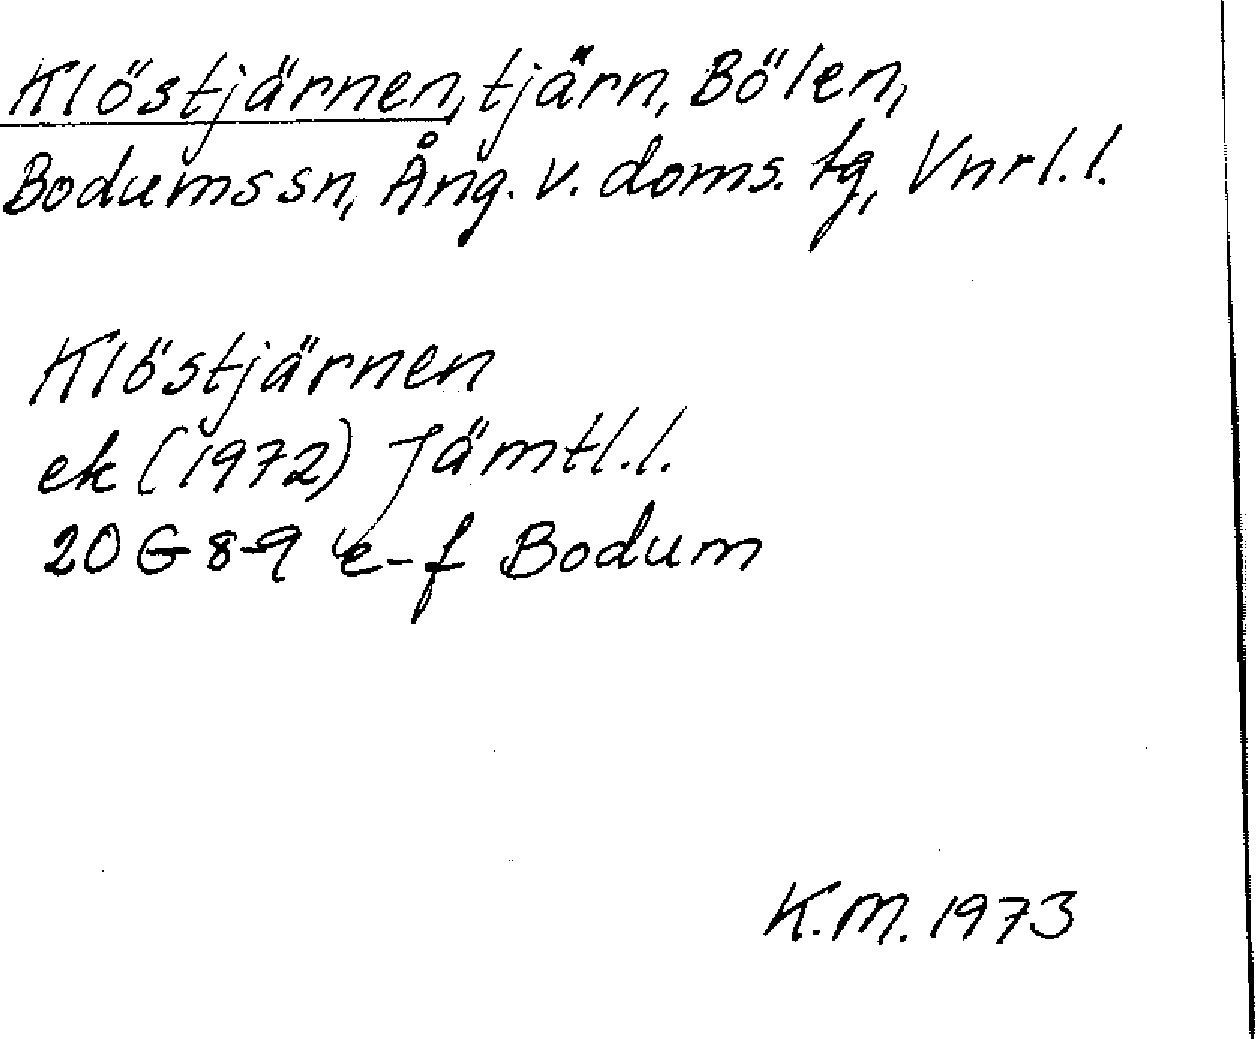 Klöstjärnen, tjärn, Bölen,
Bodums sn, Ång. v. doms. tg, Vnrl. l.
Klöstjärnen
ek (1972) Jämtl. l.
20 G 8-9 e-f Bodum
K.M. 1973